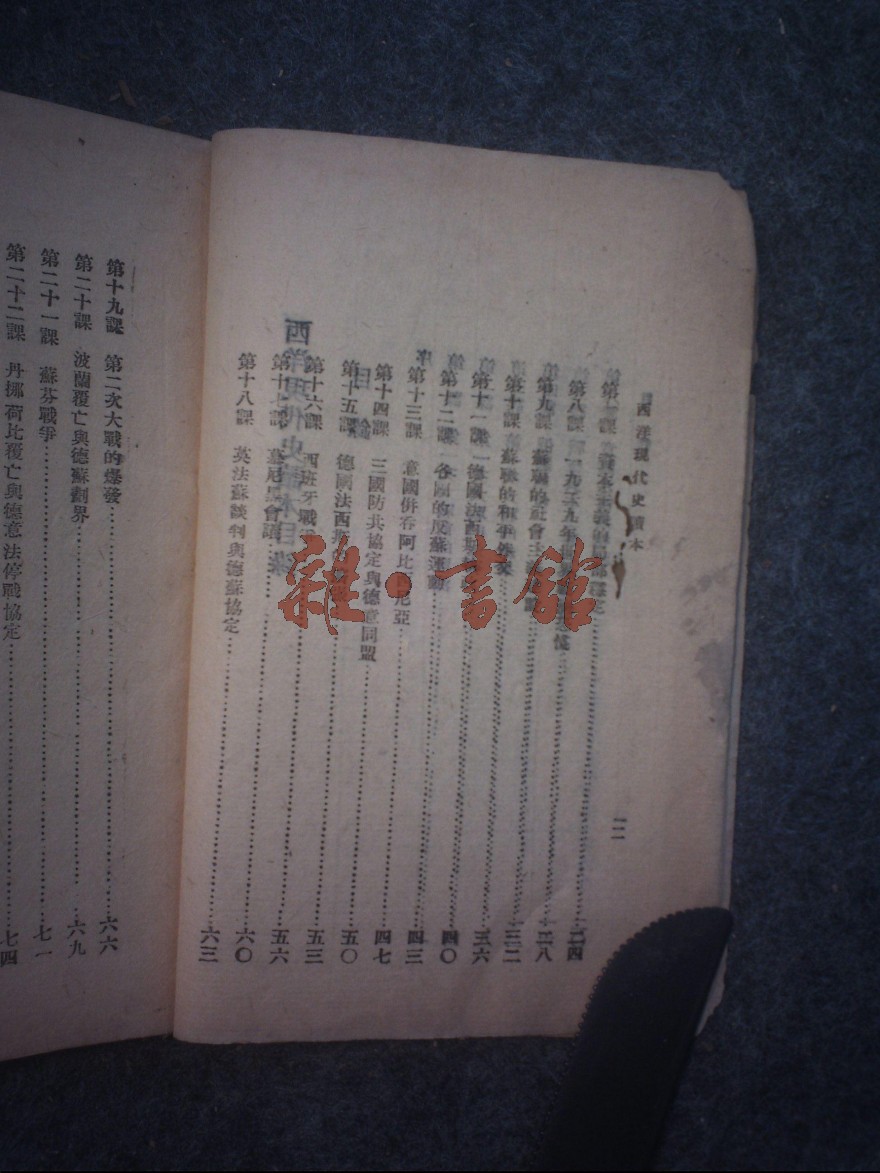 西洋現代史讀本
二
第 課 資本主義的局部穩定……二四
第八課 一九二九年 恐慌……二八
第九課 蘇聯的社會主 ……三二
第十課 蘇聯的和平政策……三六
第十一課 德國法西 ……四〇
第十二課 各國的反蘇運動……四三
第十三課 意國併吞阿比 尼亞……四七
第十四課 三國防共協定與德意同盟……五〇
第十五課 德國法西 ……五三
第十六課 西班牙戰 ……五六
第十七課 慕尼黑會議……六〇
第十八課 英法蘇談判與德蘇協定……六三
第十九課 第二次大戰的爆發……六六
第二十課 波蘭覆亡與德蘇劃界……六九
第二十一課 蘇芬戰爭……七一
第二十二課 丹挪荷比覆亡與德意法停戰協定……七四
雜·書館